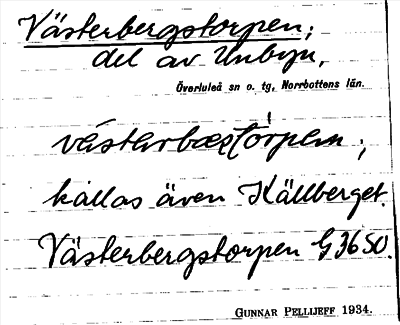 Västerbergstorpen;
del av Unbyn,
Överluleå sn o. tg, Norrbottens län.
kallas även Källberget.
Västerbergstorpen G3650.
GUNNAR PELLIJEFF 1934.